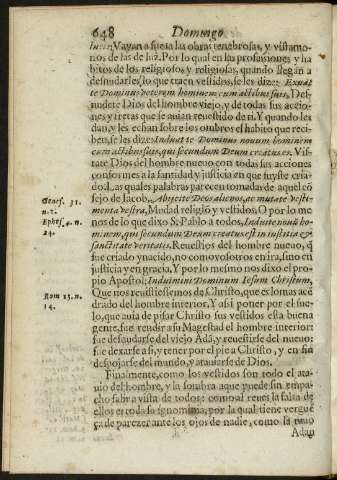 648 Domingo
lucis: Vayan a fuera las obras tenebrosas, y vistamo-
nos de las de luz. Por lo qual en las professiones y ha
bitos de los religiosos y religiosas, quando llegan a
desnudarles lo que traen vestidos, se les dize: Exuat
te Dominus veterem hominem cum actibus suis, Des-
nudete Dios del hombre viejo, y de todas sus accio-
nes y tretas que se auian reuestido de ti. Y quando les
dan, y les echan sobre los ombros el habito que reci-
ben, se les dize: Induat te Dominus nouum hominem
cum actibus suis, qui secundum Deum creatus est. Vis-
tate Dios del hombre nuevo con todas sus acciones
conformes a la santidad y justicia en que fuyste cria-
do. Las quales palabras parecen tomadas de aquel cõ
Genes. 31.
n. 2.
sejo de Jacob, Abijcite Deos alienos, ac mutate vesti-
menta vestra, Mudad religiõ y vestidos. O por lo me
Ephes. 4. n.
24.
nos de lo que dixo S. Pablo a todos, Induite nouũ ho-
minem, qui secundum Deum creatus est in iustitia &
sanctitate veritatis. Reuestios del hombre nueuo, q̃
fue criado y nacido, no como vosotros en ira, sino en
justicia y en gracia. Y por lo mesmo nos dixo el pro-
pio Apostol: Induimini Dominum Iesum Christum,
Rom 13. n.
14.
Que nos reuistiessemos de Christo, que es lo mas acẽ
drado del hombre interior. Y assi poner por el sue-
lo, que auia de pisar Christo sus vestidos esta buena
gente, fue rendir a su Magestad el hombre interior:
fue desnudarse del viejo Adã, y reuestirse del nueuo:
fue dexarse a si, y tener por el pie a Christo, y en fin
despojarse del mundo, y ataviarse de Dios.
Finalmente, como los vestidos son todo el ata-
uio del hombre, y la sombra aque puede sin empa-
cho salir a vista de todos: como al reues la falta de
ellos es toda su ignominia, por la qual tiene vergue
ça de parecer ante los ojos de nadie, como la tuuo
Adan